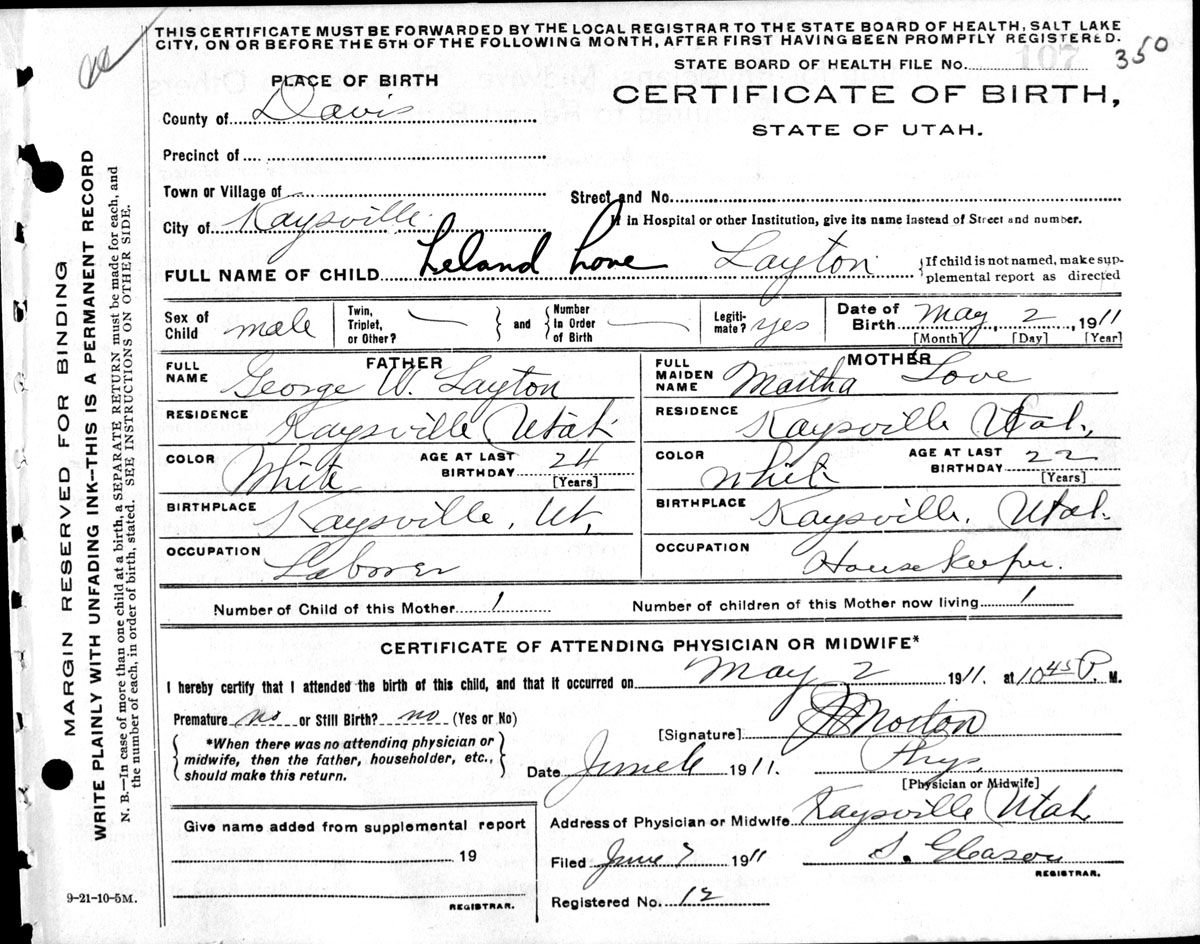 THIS CERTIFICATE MUST BE FORWARDED BY THE LOCAL REGISTRAR TO THE STATE BOARD OF HEALTH, SALT LAKE
CITY, ON OR BEFORE THE 5TH OF THE FOLLOWING MONTH, AFTER FIRST HAVING BEEN PROMPTLY REGISTERED.
STATE BOARD OF HEALTH FILE NO. 350
107
PLACE OF BIRTH
CERTIFICATE OF BIRTH,
STATE OF UTAH.
County of Davis
Precinct of
Town or Village of
Street and No.
City of Kaysville
If in Hospital or other Institution, give its name instead of Street and number.
FULL NAME OF CHILD Leland Love Layton
{If child is not named, make supplemental report as directed
Sex of Child male
Twin, Triplet, or Other? } and { Number In Order of Birth
Legitimate? yes
Date of Birth May 2, 1911
[Month] [Day] [Year]
FATHER
FULL NAME George W. Layton
RESIDENCE Kaysville Utah
COLOR White AGE AT LAST BIRTHDAY 24 [Years]
BIRTHPLACE Kaysville, Ut,
OCCUPATION Laborer
MOTHER
FULL MAIDEN NAME Martha Love
RESIDENCE Kaysville Utah,
COLOR White AGE AT LAST BIRTHDAY 22 [Years]
BIRTHPLACE Kaysville, Utah.
OCCUPATION Housekeeper.
Number of Child of this Mother 1 Number of children of this Mother now living 1
CERTIFICATE OF ATTENDING PHYSICIAN OR MIDWIFE*
I hereby certify that I attended the birth of this child, and that it occurred on May 2 1911. at 10 45 P. M.
Premature no or Still Birth? no (Yes or No)
{*When there was no attending physician or midwife, then the father, householder, etc., should make this return.}
[Signature] Morton
Date June 6 1911. Phys.
[Physician or Midwife]
Give name added from supplemental report
19
REGISTRAR.
Address of Physician or Midwife Kaysville Utah
Filed June 7 1911 S. Gleason
REGISTRAR.
Registered No. 12
9-21-10-5M.
MARGIN RESERVED FOR BINDING
WRITE PLAINLY WITH UNFADING INK—THIS IS A PERMANENT RECORD
N. B.—In case of more than one child at a birth, a SEPARATE RETURN must be made for each, and
the number of each, in order of birth, stated. SEE INSTRUCTIONS ON OTHER SIDE.